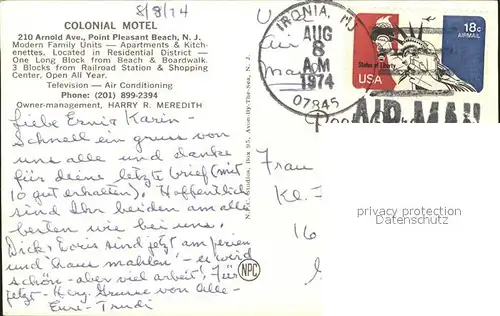 8/8/74
COLONIAL MOTEL
210 Arnold Ave., Point Pleasant Beach, N. J.
Modern Family Units — Apartments & Kitch-
enettes. Located in Residential District —
One Long Block from Beach & Boardwalk.
3 Blocks from Railroad Station & Shopping
Center. Open All Year.
Television — Air Conditioning
Phone: (201) 899-2394
Owner-management, HARRY R. MEREDITH
Liebe Karin—
Schnell ein gruss von
uns alle und danke
für deine letzte brief (mit
10 gut erhalten). Hoffentlich
sind Ihr beiden am alle
besten wie bei uns.
Dick, Doris sind jetzt am ferien
und haus mahlen – es wird
schön – aber viel arbeit! Für
jetzt – Herz. Grusse von alle –
Eure – Trudi
N.P.C. Studios, Box 95, Avon-By-The-Sea, N. J.
NPC
IRONIA, NJ
AUG
8
AM
1974
07845
18c
AIRMAIL
Statue of Liberty
USA
AIR MAIL
Frau
Kl.
16
privacy protection
address removed